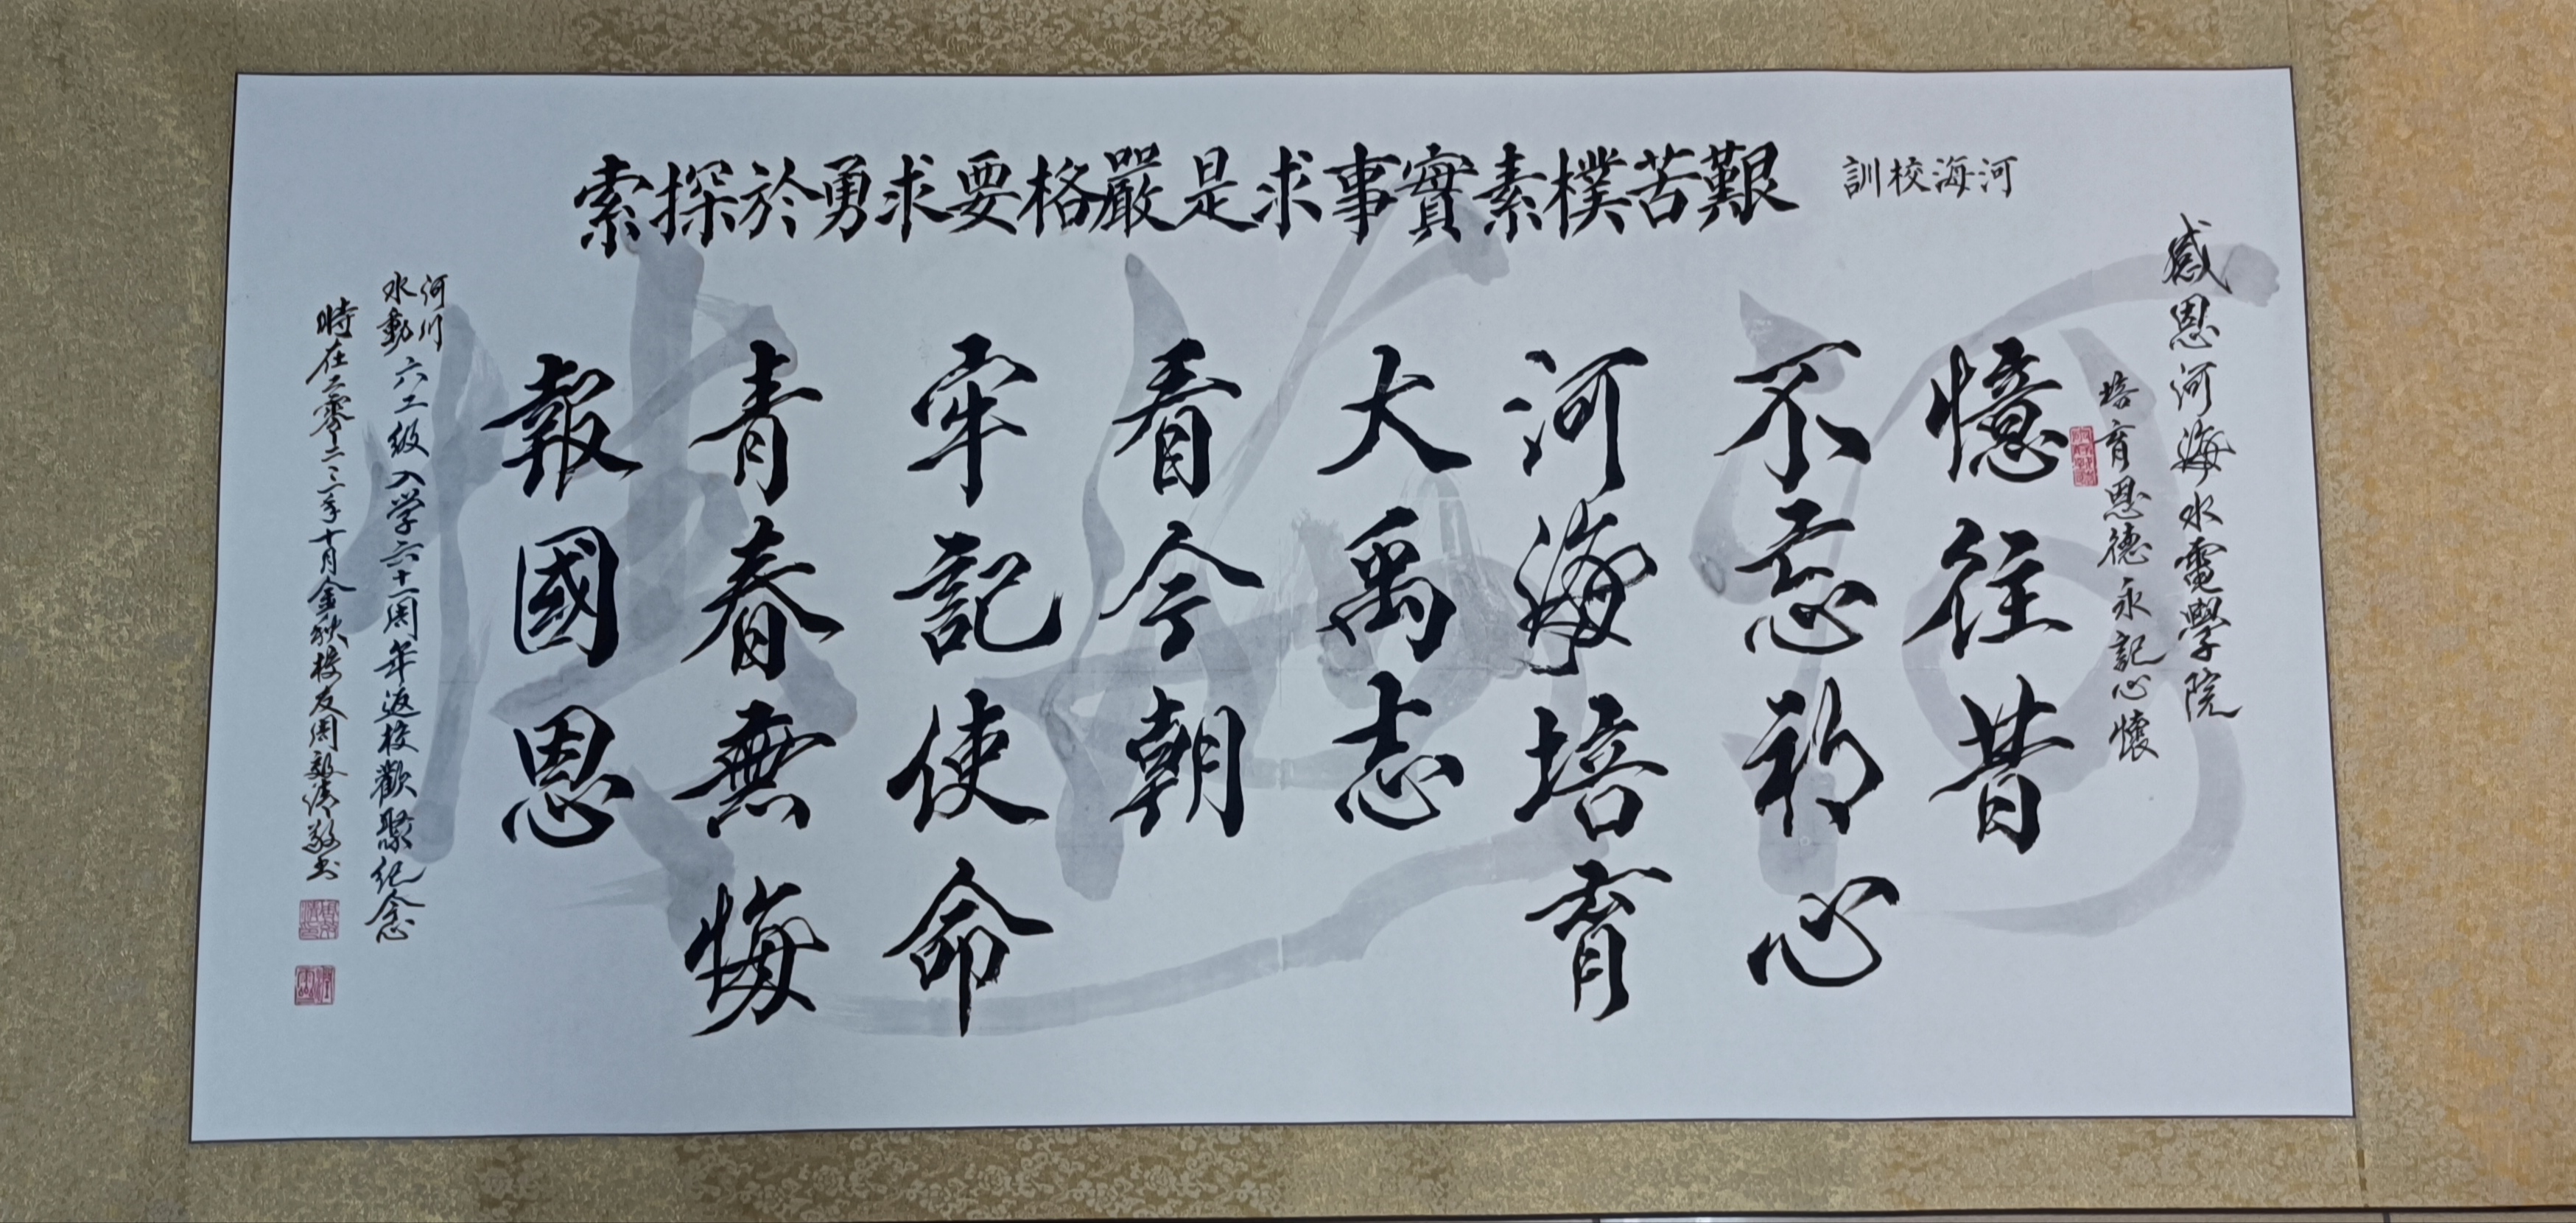 河海校訓
艱苦樸素實事求是嚴格要求勇於探索
感恩河海水電學院
培育恩德永記心懷
憶往昔
不忘初心
河海培育
大禹志
看今朝
牢記使命
青春無悔
報國恩
河川
水動
六二级入学六十一周年返校歡聚纪念
時在二零二三年十月金秋校友周毅清敬书